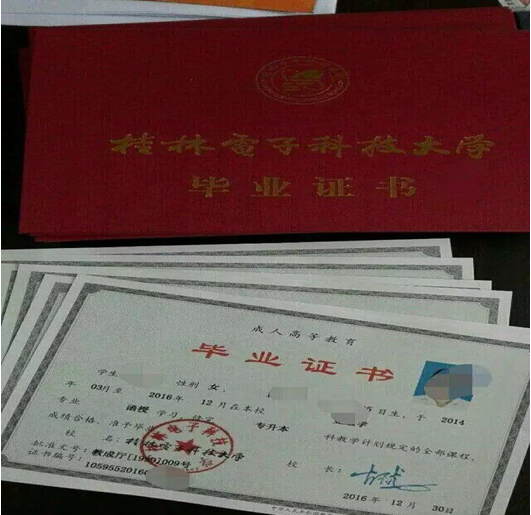 桂林電子科技大学
毕业证书
成人高等教育
毕业证书
学生 性别 女, 日生, 于 2014
年 03月至 2016年 12月在本校
专业 函授 学习, 专升本 科教学计划规定的全部课程,
成绩合格, 准予毕业
校 名: 桂林电子科技大学 校 长:
批准文号: 教成厅[1990]009号
证书编号: 1059552016
2016 年 12 月 30日